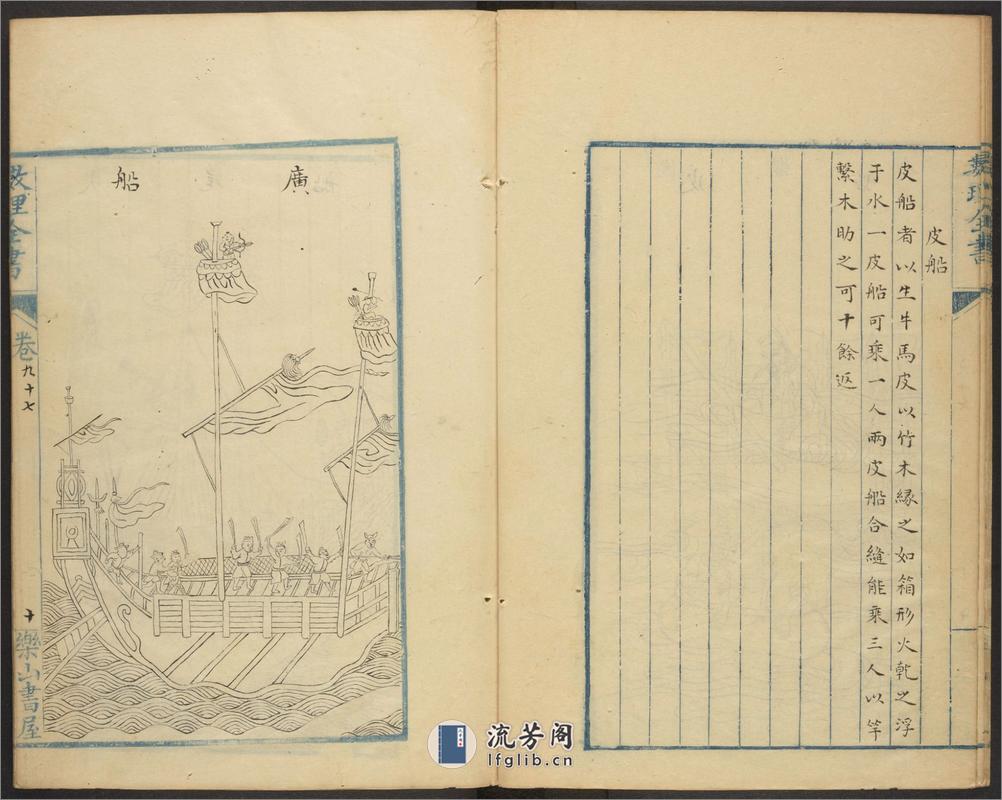 皮船
皮船者以生牛馬皮以竹木縁之如箱形火乾之浮
于水一皮船可乘一人兩皮船合縫能乘三人以竿
繫木助之可十餘返
廣船
數理全書
卷九十七
十
樂山書屋
流芳阁
lfglib.cn